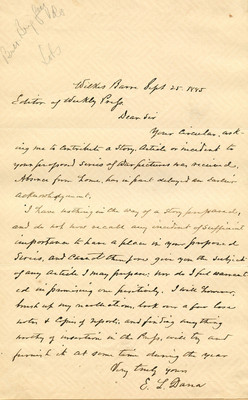 Wilkes Barre Sept 25 1885
Editor of Weekly Press
Dear Sir
Your Circular, ask-
ing me to contribute a Story, Article or incident to
your proposed series of War pictures was received,
Absence from home, has in part delayed an earlier
acknowledgment.
I have nothing in the way of a story prepared,
and do not now recall any incident of sufficient
importance to have a place in your proposed
Series, and cannot therefore give you the subject
of any Article I may prepare; nor do I feel warrant-
ed in promising one positively. I will however,
brush up my recollection, look over a few loose
notes & Copies of reports, and finding anything
worthy of insertion in the Press, will try and
furnish it at some time during the year
Very truly yours
E. L. Dana